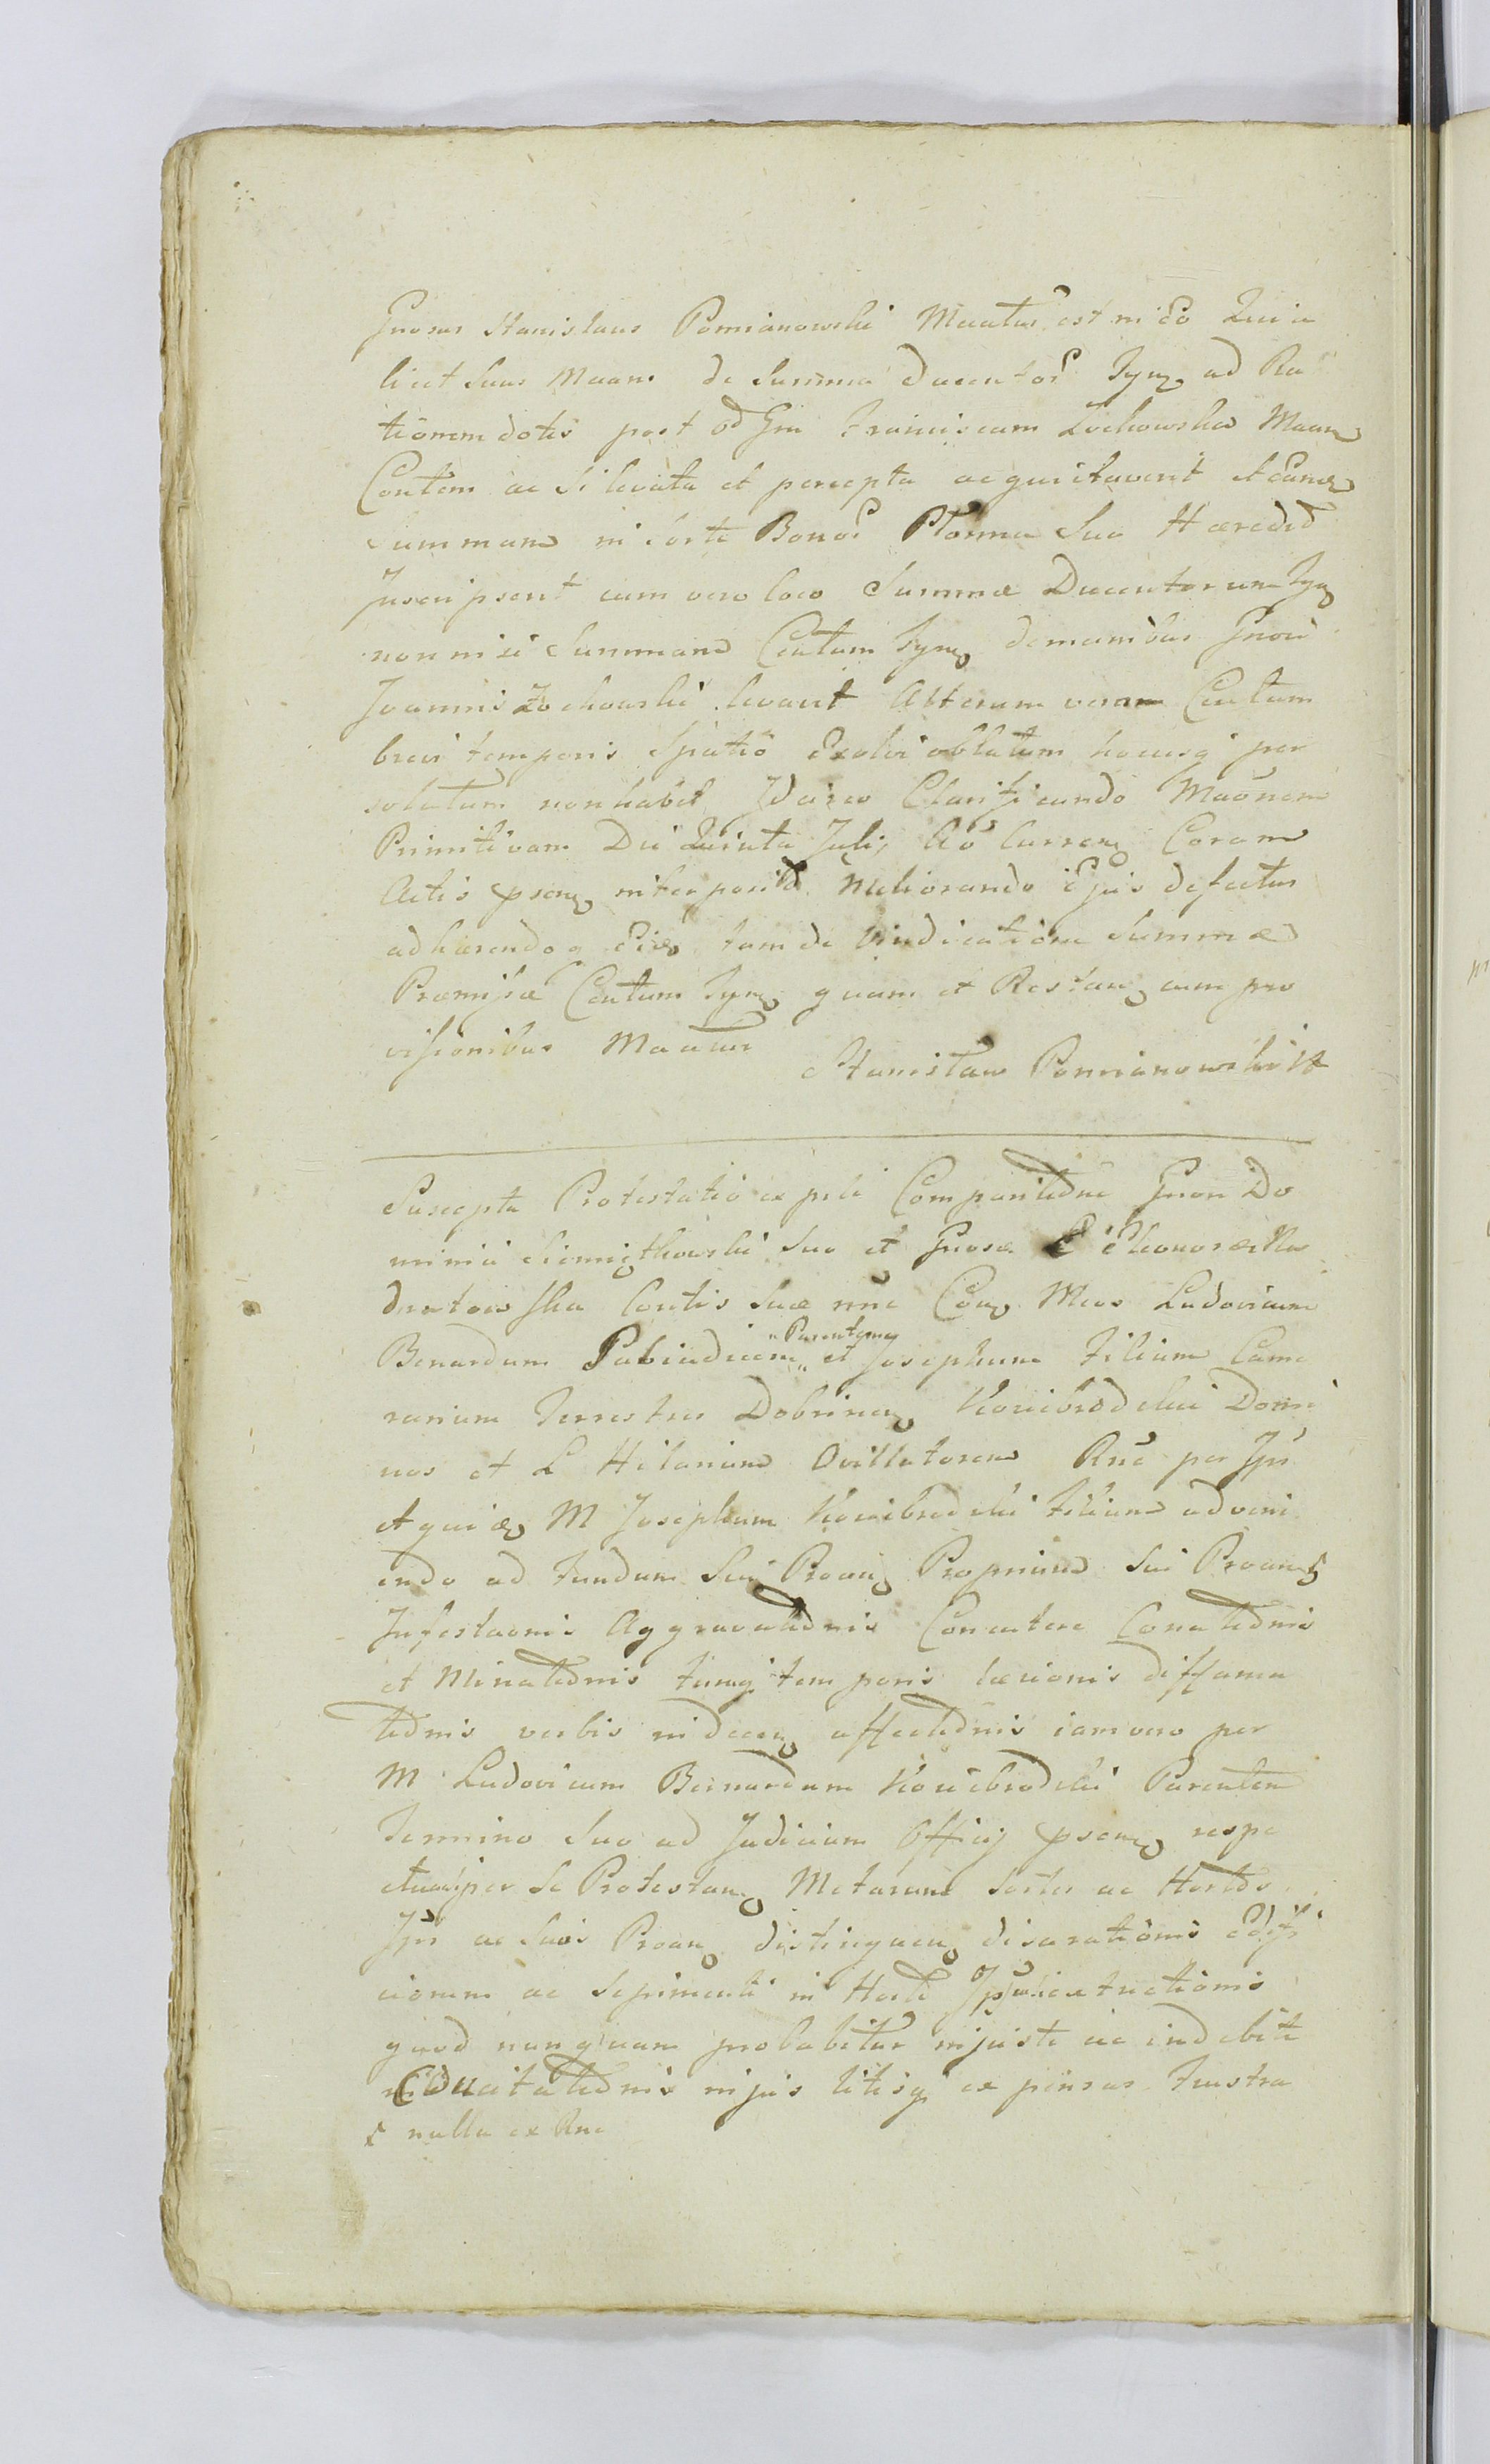 Gnosus Stanislaus Pomianowski Maatus est in eo Quia
licet Suus Maans de Summa Ducentor Tyn ad Ra
tionem dotis post od Gm Franciscam Zochowska Maans
Contem ac si levata et percepta acquietaverit et eam
Summam in Sorte Bonor Ptonna Suo Haeredit
Inscripserit cum vero loco Summæ Ducentorum Tyn
nonnisi Summam Centum Tyn de manibus Gnosi
Joannis Zochowski levavit Alterum verum Centum
brevi temporis Spatio Exolvi oblatum hucusq per
solutum non habet Idcirco Clarificando Maonem
Primitivam Die Quinta Julij Ao Curren Coram
Actis psen interposita Meliorando Ejus defectus
adhærendoq Eidem tam de Vindicatione Summæ
Præmissæ Centum Tyn quam et Restan cum pro
visionibus Maatur
Stanisław Pomianowski
Suscepta Protestatio ex pte Comparitione Gnosi Do
minici Siemiątkowski Suo et Gnosæ Eleonoræ
Contis Suæ nne Con Mcos Ludovicum
Bernardum Parentem et Josephum Filium Came
rarium Terrestres Dobrinen Koziebrodzki Domi
nos et L Hilarium Ovillatorem Rne per Ipm
et quidem M Josephum Koziebrodzki Filium adveni
endo ad Fundum Sui Proan Proprium Sui Proan
Infestaonis Aggravationis Concutere Conationis
et Minationis tumq temporis læsionis diffama
tionis verbis indecen affectionis iam vero per
M Ludovicum Bernardum Koziebrodzki Parentem
Termino Suo ad Judicium Officij psen respe
ctuus per Se Protestan Metarum Sortes ac Hortos
Ipsi ac Suos Proan distinguen disarationis Edifi
ciorum ac Sepimenti in Horto extructionis
quod nunquam probabitur injuste ac indebite
Citationis in jus litisq expensas frustra
nulla ex Rne